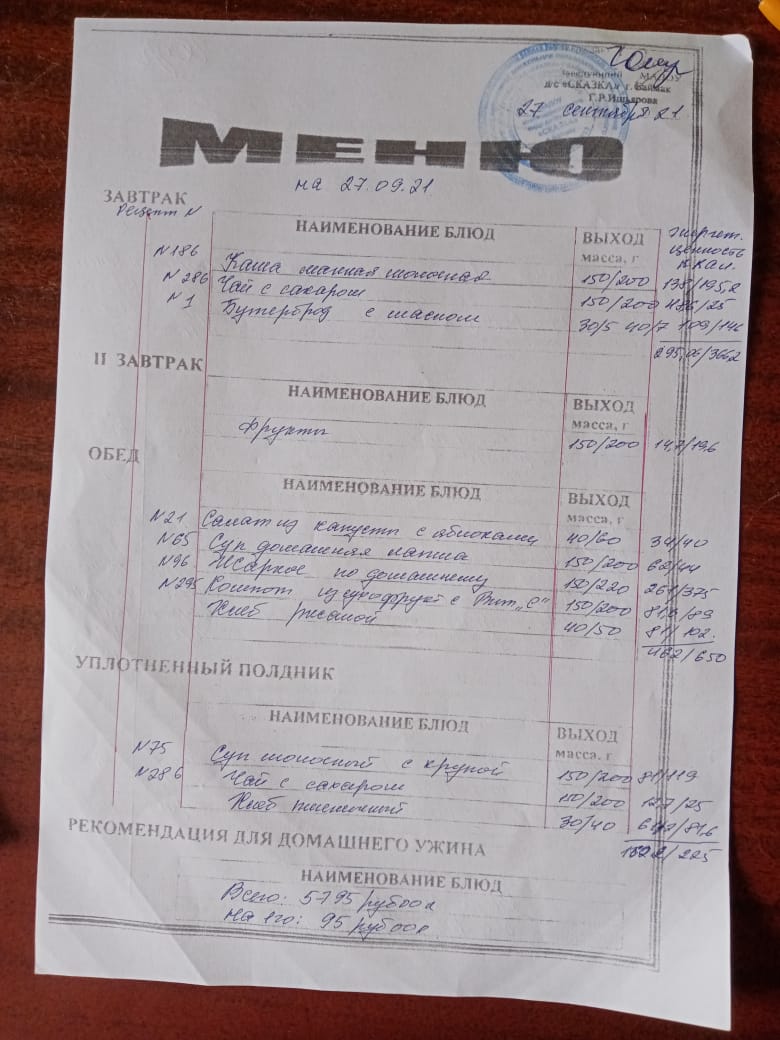 Заведующий МАДОУ
д/с «СКАЗКА» г. Баймак
Г.Р.Ишъярова
27 сентября 21.
МЕНЮ
на 27.09.21
ЗАВТРАК
Рецепт N
НАИМЕНОВАНИЕ БЛЮД
ВЫХОД
масса, г
Энергет.
ценность
ккал.
N186 Каша манная молочная 150/200 138/195,2
N 286 Чай с сахаром 150/200
N1 Бутерброд с маслом 30/5 40/7 109/146
295,06/366,2
II ЗАВТРАК
НАИМЕНОВАНИЕ БЛЮД
ВЫХОД
масса, г
Фрукты 150/200 14,7/19,6
ОБЕД
НАИМЕНОВАНИЕ БЛЮД
ВЫХОД
масса, г
N21 Салат из капусты с яблоками 40/60 34/40
N65 Суп домашняя лапша 150/200 62/44
N96 Жаркое по домашнему 150/220 261/375
N295 Компот из сухофрукт с Вит „С" 150/200 81,6/89
Хлеб ржаной 40/50 81/102.
462/650
УПЛОТНЕННЫЙ ПОЛДНИК
НАИМЕНОВАНИЕ БЛЮД
ВЫХОД
масса, г
N75 Суп молочный с крупой 150/200 81/119
N286 Чай с сахаром 150/200 12,7/25
Хлеб пшеничный 30/40 61,2/81,6
/225
РЕКОМЕНДАЦИЯ ДЛЯ ДОМАШНЕГО УЖИНА
НАИМЕНОВАНИЕ БЛЮД
Всего: 5795 руб00к
на 1го: 95 руб00к